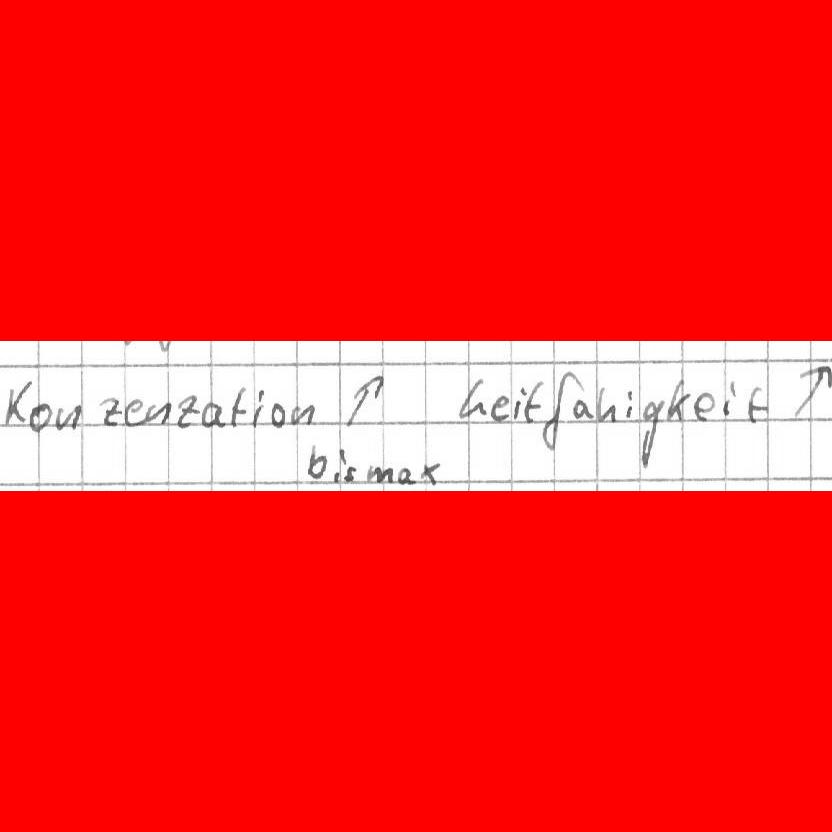 Konzenzation ↑ Leitfahigkeit ↑
bis max